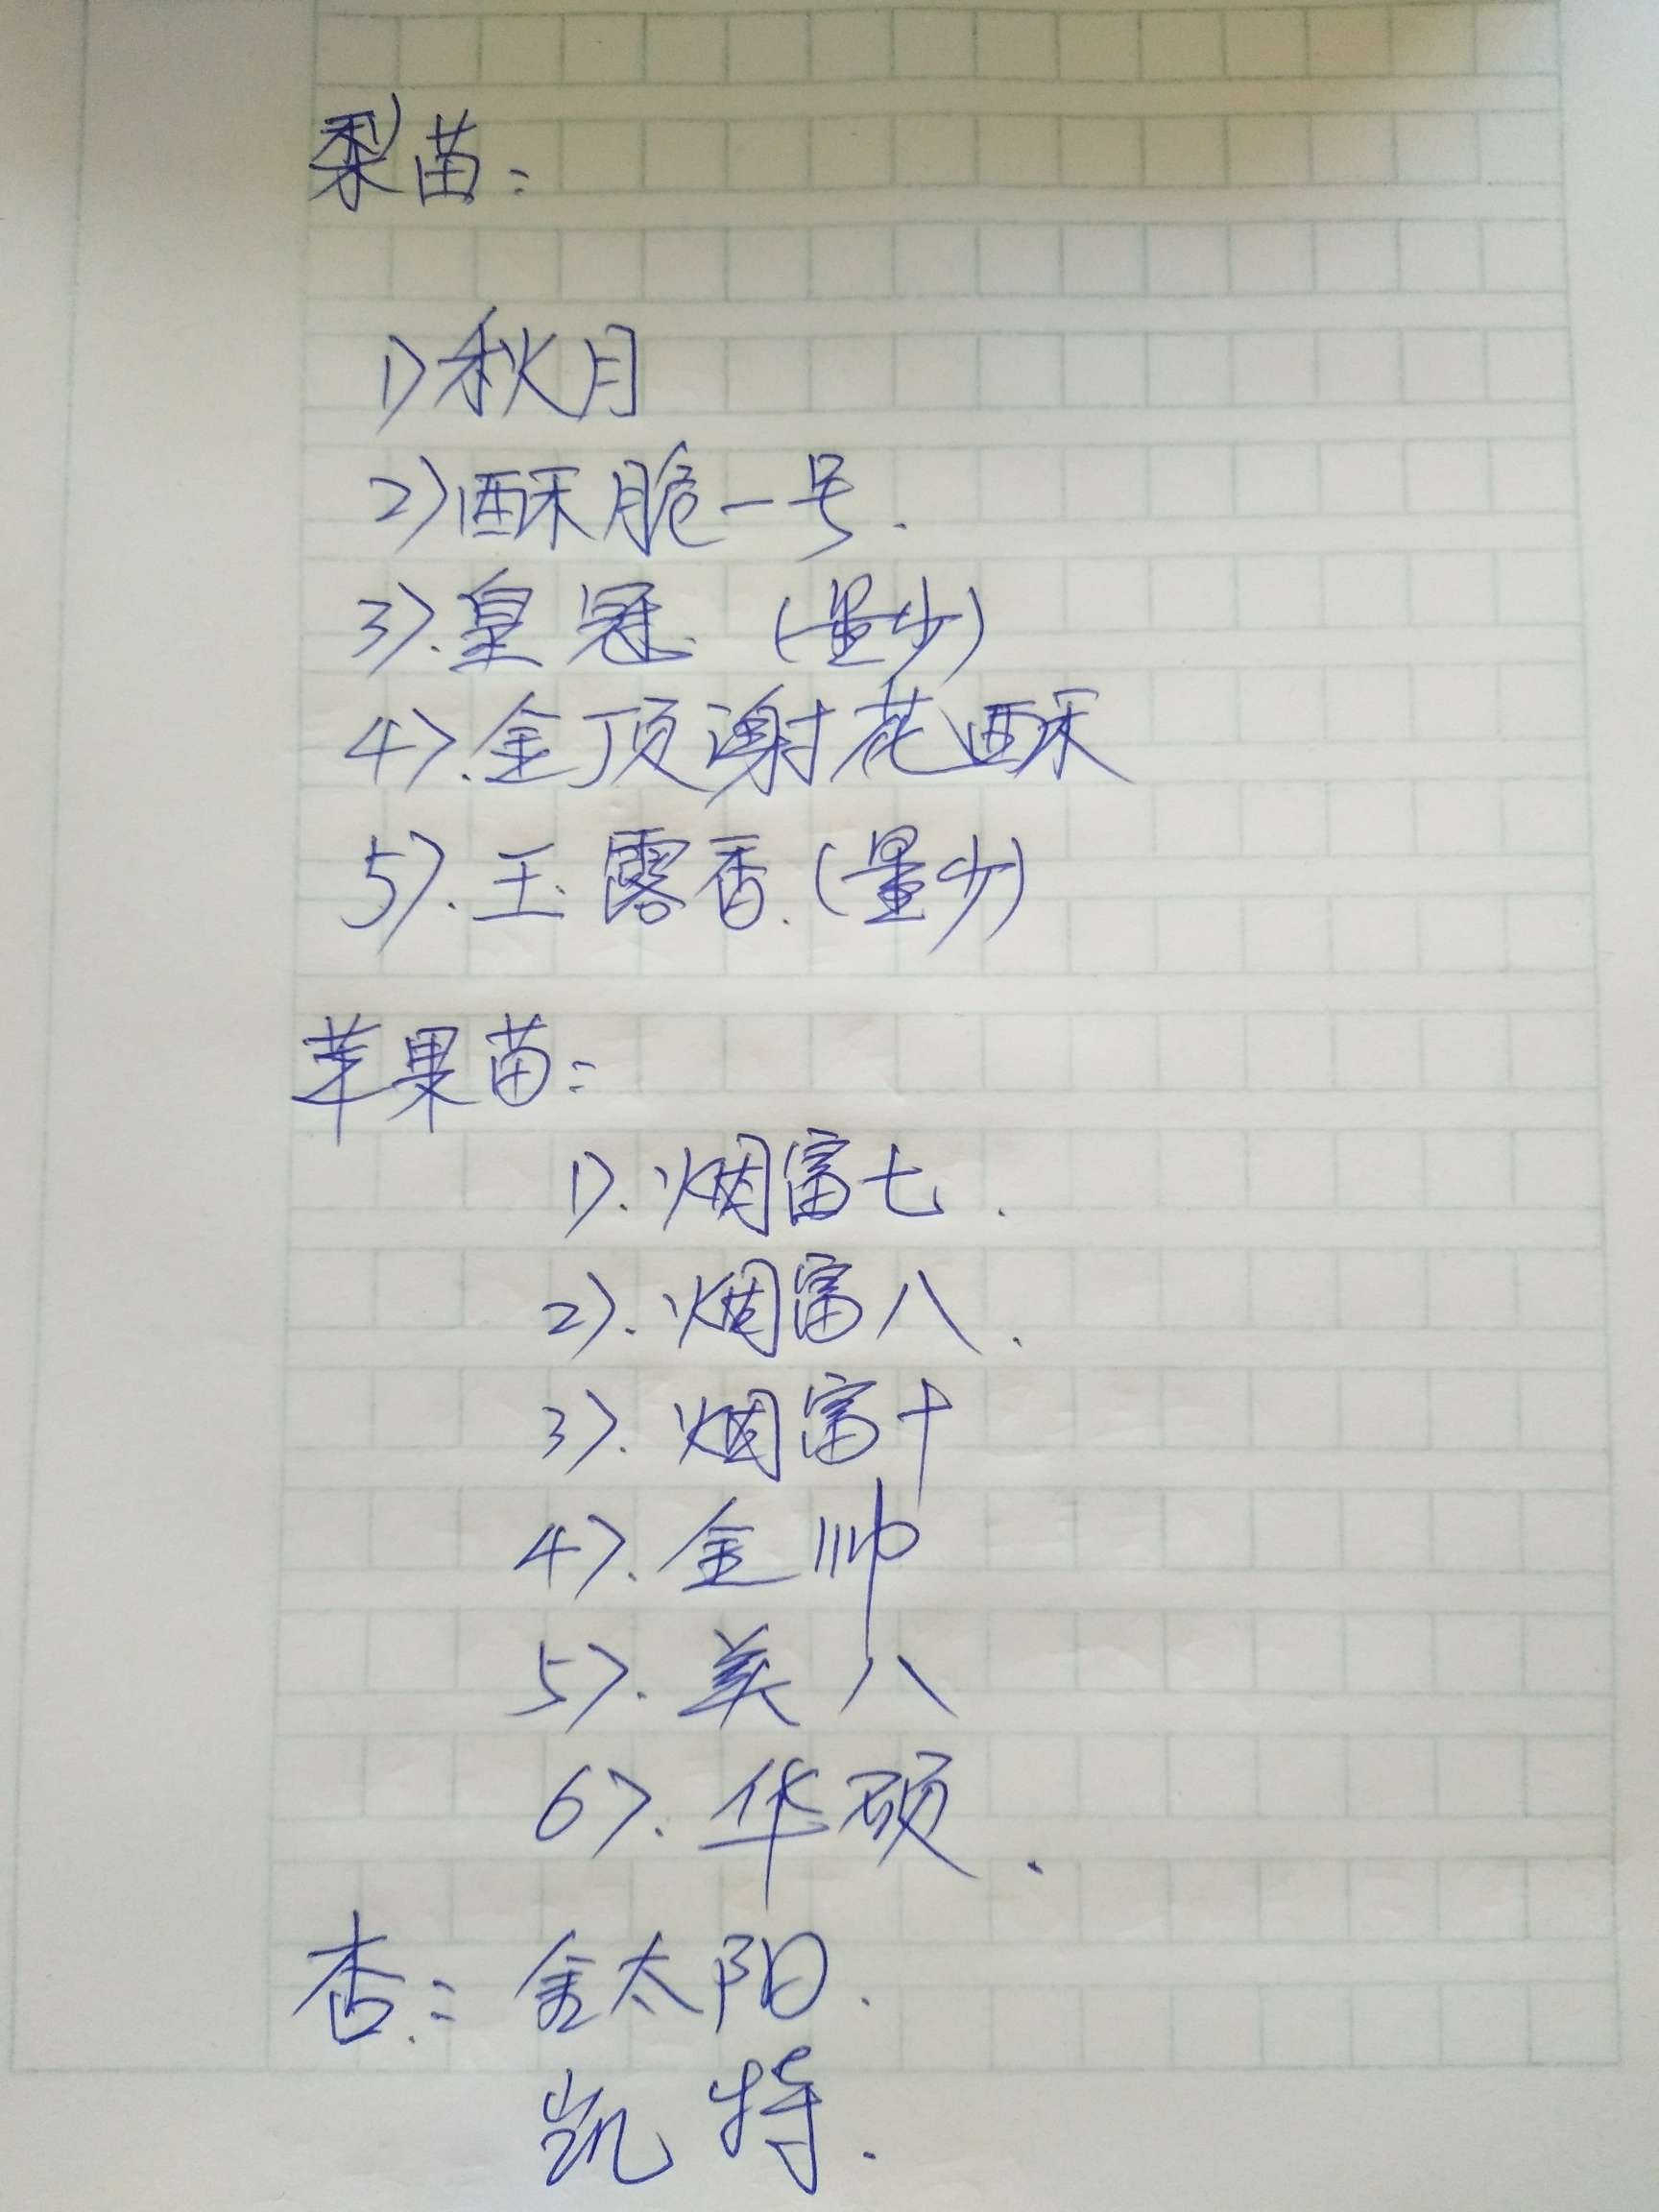 梨苗：
1)秋月
2)酥脆一号.
3).皇冠.(量少)
4).金顶谢花酥
5).玉露香.(量少)
苹果苗：
1).烟富七.
2).烟富八.
3).烟富十
4).金帅
5).美八
6).华硕.
杏：金太阳.
凯特.